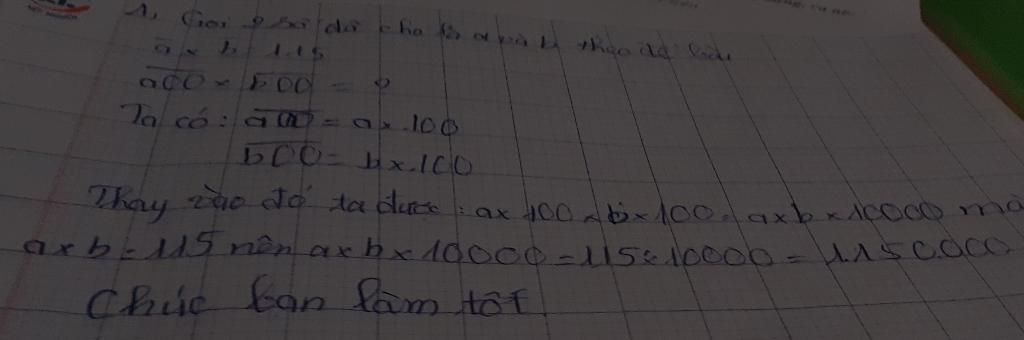 1, Gọi 2 số đã cho là a và b theo đề bài
a × b 115
a00 × b00 = ?
Ta có: a00 = a × 100
b00 = b × 100
Thay vào đó ta được: a × 100 × b × 100 = a × b × 10000 mà
a × b = 115 nên a × b × 10000 = 115 × 10000 = 1.150.000
Chúc bạn làm tốt